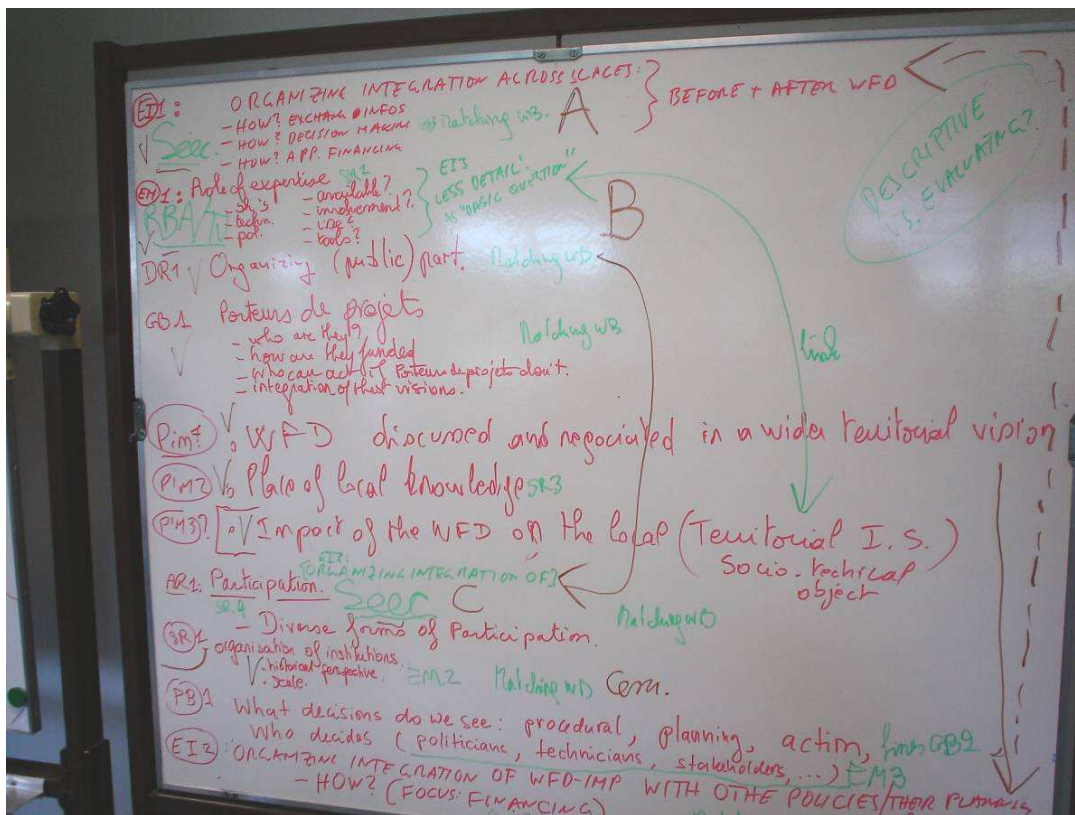 EI1: ORGANIZING INTEGRATION ACROSS SCALES: BEFORE + AFTER WFD
- HOW? EXCHANG INFOS
- HOW? DECISION MAKING Matching WB. A
√ Seec. - HOW? APP. FINANCING
DESCRIPTIVE
VS. EVALUATING?
EM1: Role of expertise SR2
- sh's - available?
- techn. - involvement?
- pol. - use?
- tools?
EI3
LESS DETAIL:
AS "BASIC QUESTION"
B
DR1 √ Organizing (public) part. Matching WB
GB1 Porteurs de projets
√ - who are they?
- how are they funded
- who can act if Porteurs de projets don't.
- integration of their visions.
Matching WB
link
Pim1 √ WFD discussed and negociated in a wider territorial vision
PIM2 √ Place of local knowledge SR3
PIM3? √ Impact of the WFD on the local (Territorial I.S.)
Socio-technical
object
EI2:
[ORGANIZING INTEGRATION OF]
AR1: Participation. Seec C
SR4
- Diverse forms of Participation. Matching WB
SR1 organisation of institutions.
√ - historical perspective.
- scale. EM2 Matching WB Cem.
PB1 What decisions do we see: procedural, planning, action, GB2
Who decides (politicians, technicians, stakeholders, ...) EM3
EI2: ORGANIZING INTEGRATION OF WFD-IMP WITH OTHE POLICIES/THEIR PLANNING
- HOW? (FOCUS: FINANCING)